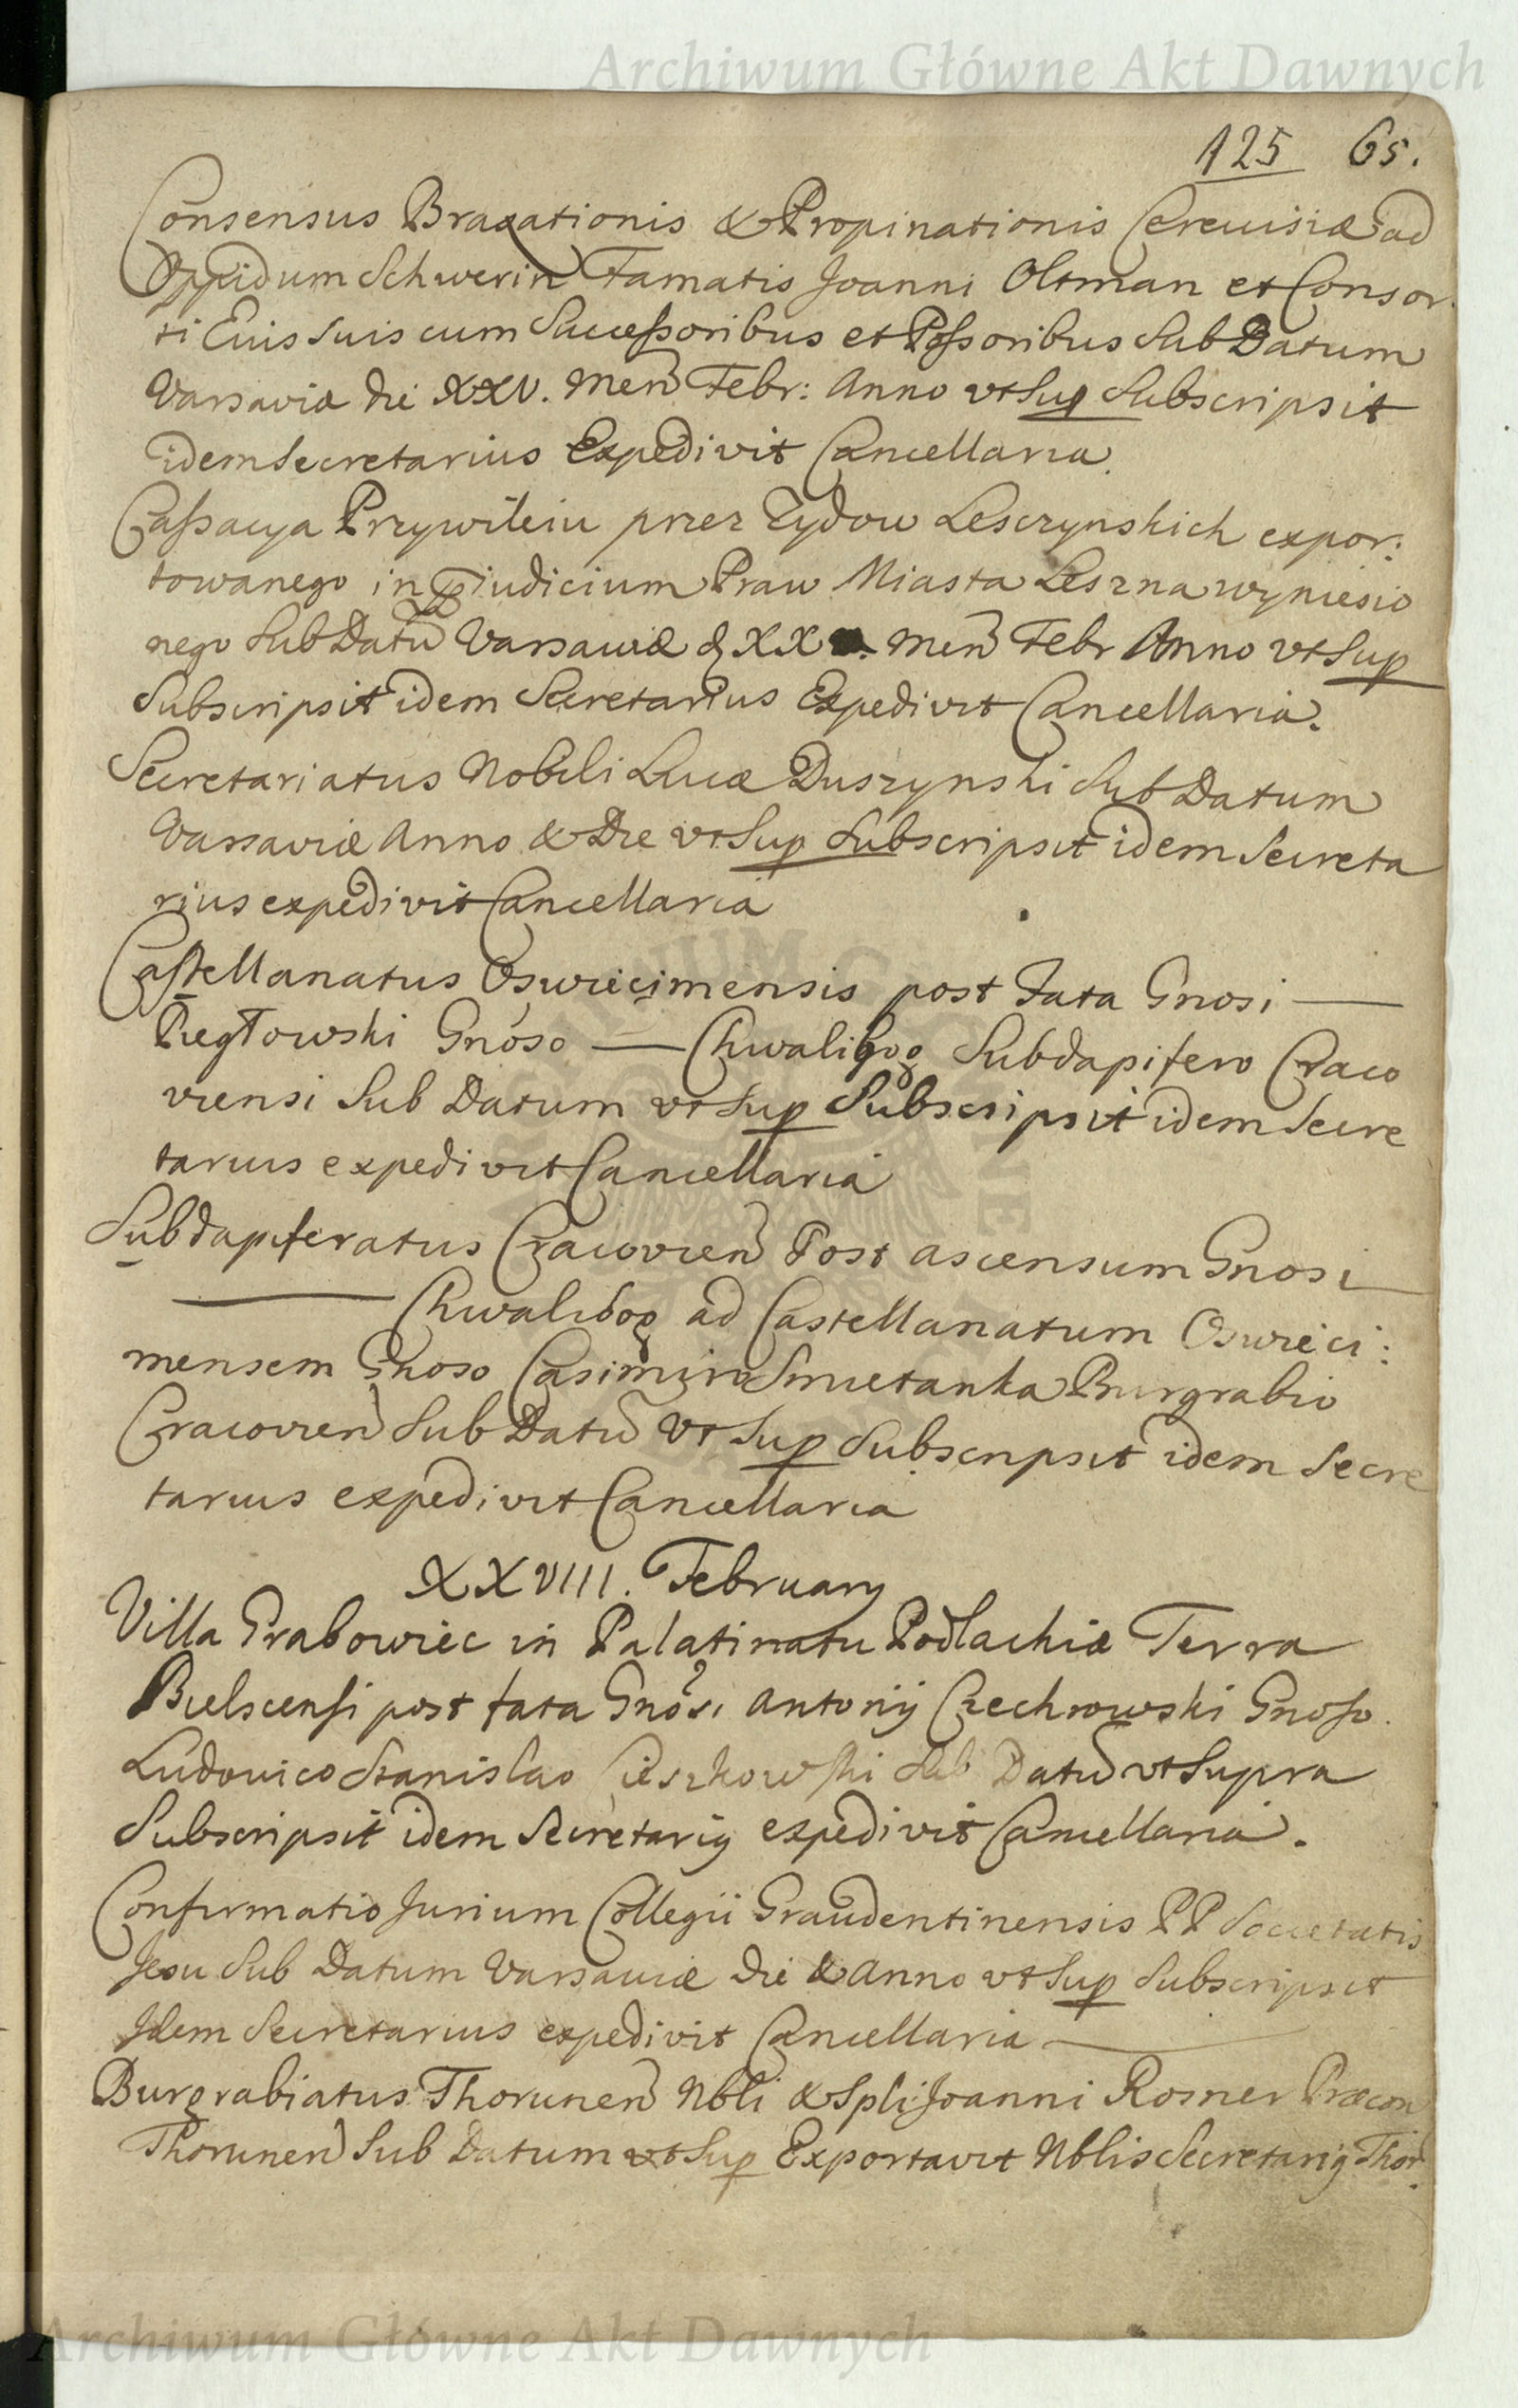 Archiwum Główne Akt Dawnych
125 65.
Consensus Braxationis & Propinationis Cerevisiæ ad
Oppidum Schwerin Famatis Joanni Oltman et Consor
ti Eius suis cum Successoribus et Possoribus Sub Datum
Varsaviæ die XXV. Men Febr: Anno vt Sup Subscripsit
idem Secretarius Expedivit Cancellaria.
Cassacya Przywileiu przez Zydow Lesczynskich expor:
towanego in præiudicium Praw Miasta Leszna wyniesio
nego Sub Datũ Varsaviæ d XX Men Febr Anno vt Sup
Subscripsit idem Secretarius Expedivit Cancellaria.
Secretariatus Nobili Lucæ Duszynski Sub Datum
Varsaviæ Anno & Die vt Sup Subscripsit idem Secreta
rius expedivit Cancellaria
Castellanatus Oswiecimensis post Fata Gnosi —
Pregtowski Gnoso — Chwalibog Subdapifero Craco
viensi Sub Datum vt Sup Subscripsit idem Secre
tarius expedivit Cancellaria
Subdapiferatus Cracovien Post ascensum Gnosi
— Chwalibog ad Castellanatum Oswieci:
mensem Gnoso Casimiro Smietanka Burgrabio
Cracovien Sub Datũ Vt Sup Subscripsit idem Secre
tarius expedivit Cancellaria
XXVIII. February
Villa Grabowiec in Palatinatu Podlachiæ Terra
Bielscensi post fata Gnosi Antonij Czechowski Gnoso.
Ludovico Stanislao Cieszkowski Sub Datũ vt Supra
Subscripsit idem Secretarig expedivit Cancellaria.
Confirmatio Jurium Collegii Graudentinensis PP Societatis
Jesu Sub Datum Varsaviæ die & Anno vt Sup Subscripsit
Idem Secretarius expedivit Cancellaria —
Burgrabiatus Thorunen Nbli & Spli Joanni Rosner Præcon
Thorunen Sub Datum vt Sup Exportavit Nblis Secretarig Thor.
Archiwum Główne Akt Dawnych